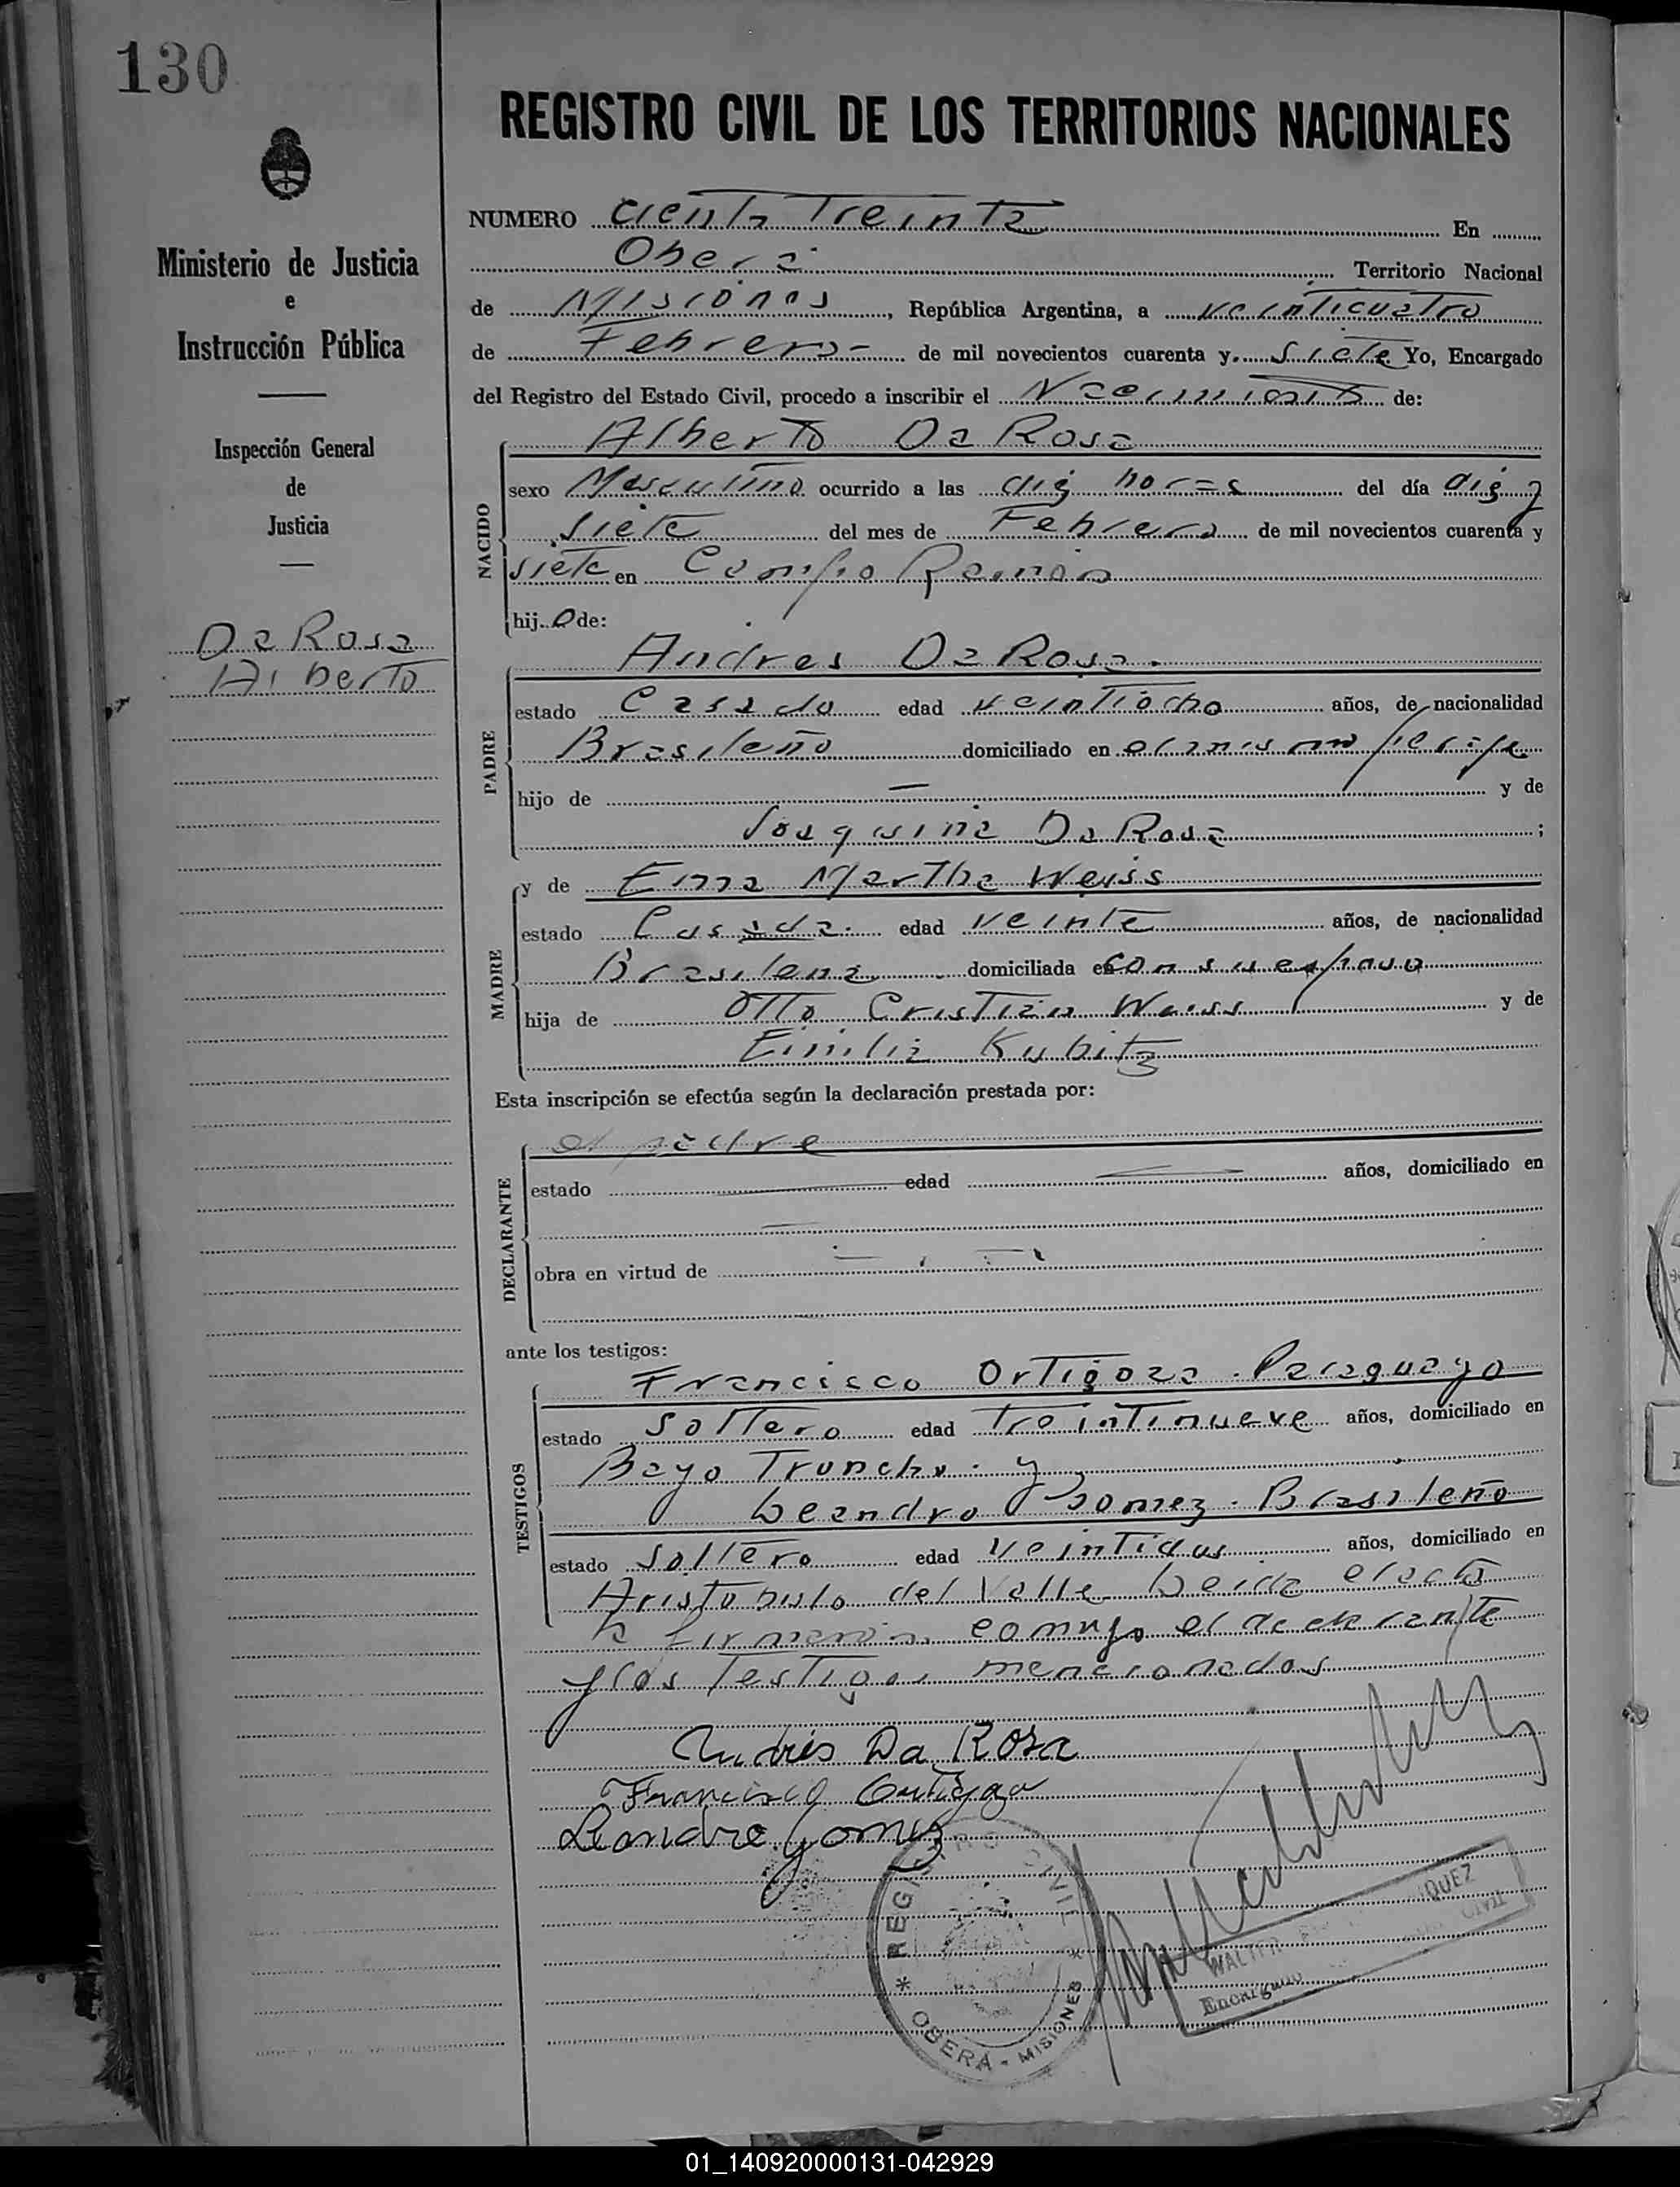 130
REGISTRO CIVIL DE LOS TERRITORIOS NACIONALES
Ministerio de Justicia
e
Instrucción Pública
Inspección General
de
Justicia
Da Rosa
Alberto
NUMERO Ciento Treinta En
Oberá Territorio Nacional
de Misiones, República Argentina, a veinticuatro
de Febrero - de mil novecientos cuarenta y siete Yo, Encargado
del Registro del Estado Civil, procedo a inscribir el Nacimiento de:
NACIDO
Alberto Da Rosa
sexo Masculino ocurrido a las diez horas del día diez y
siete del mes de Febrero de mil novecientos cuarenta y
siete en Campo Ramón
hijo de:
PADRE
Andres Da Rosa.
estado Casado edad veintiocho años, de nacionalidad
Brasileño domiciliado en el mismo paraje
hijo de — y de
Joaquina Da Rosa ;
MADRE
y de Erna Martha Weiss
estado Casada. edad veinte años, de nacionalidad
Brasilena domiciliada en con su esposo
hija de Otto Cristian Weiss y de
Emilia Kubitz
Esta inscripción se efectúa según la declaración prestada por:
DECLARANTE
el padre
estado edad años, domiciliado en
obra en virtud de
ante los testigos:
TESTIGOS
Francisco Ortigoza. Paraguayo
estado Soltero edad Treintinueve años, domiciliado en
Bayo Troncho. y
Leandro Gomez. Brasileño
estado Soltero edad Veintidos años, domiciliado en
Aristobulo del Valle Leida el acta
la firmaron conmigo el declarante
y los Testigos mencionados
Andrés Da Rosa
Francisco Ortigoza
Leandro Gomez
* REGISTRO CIVIL * OBERÁ - MISIONES
WALTER QUEZ
Encargado CIVIL
01_140920000131-042929